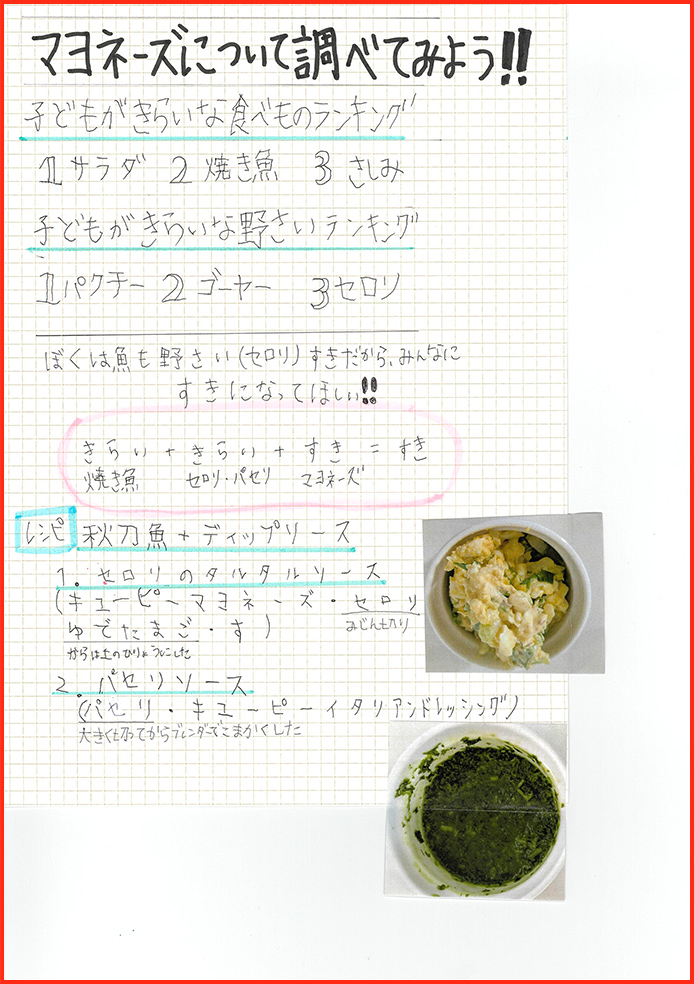 マヨネーズについて調べてみよう!!
子どもがきらいな食べものランキング
1サラダ 2 焼き魚 3 さしみ
子どもがきらいな野さいランキング
1パクチー 2ゴーヤー 3セロリ
ぼくは魚も野さい(セロリ)すきだから、みんなに
すきになってほしい!!
きらい + きらい + すき = すき
焼き魚 セロリ・パセリ マヨネーズ
レシピ 秋刀魚+ディップソース
1. セロリのタルタルソース
(キューピーマヨネーズ・セロリ
みじん切り
ゆでたまご・す)
からは土のひりょうにした
2. パセリソース
(パセリ・キューピーイタリアンドレッシング)
大きく切ってからブレンダーでこまかくした